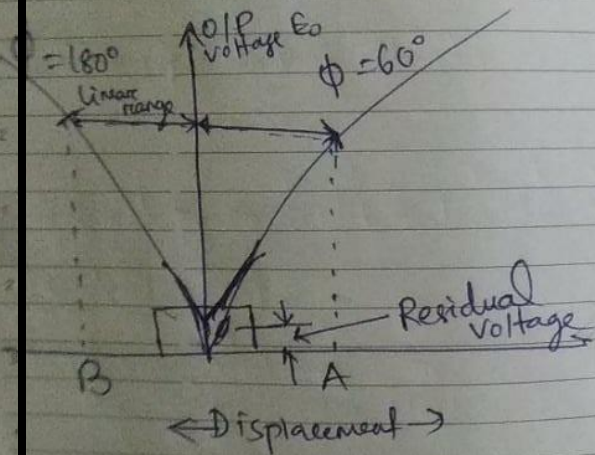 O/P
voltage E₀
=180°
ϕ =60°
linear
range
Residual
voltage
B
A
Displacement